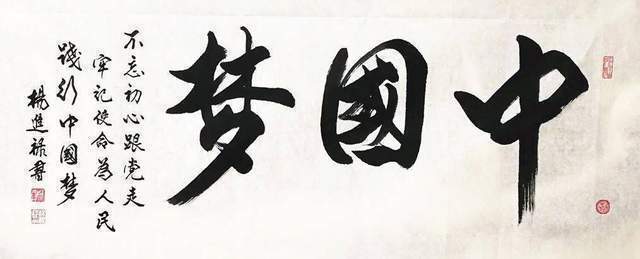 中國梦
不忘初心跟党走
牢记使命為人民
踐行中國梦
楊進禄書